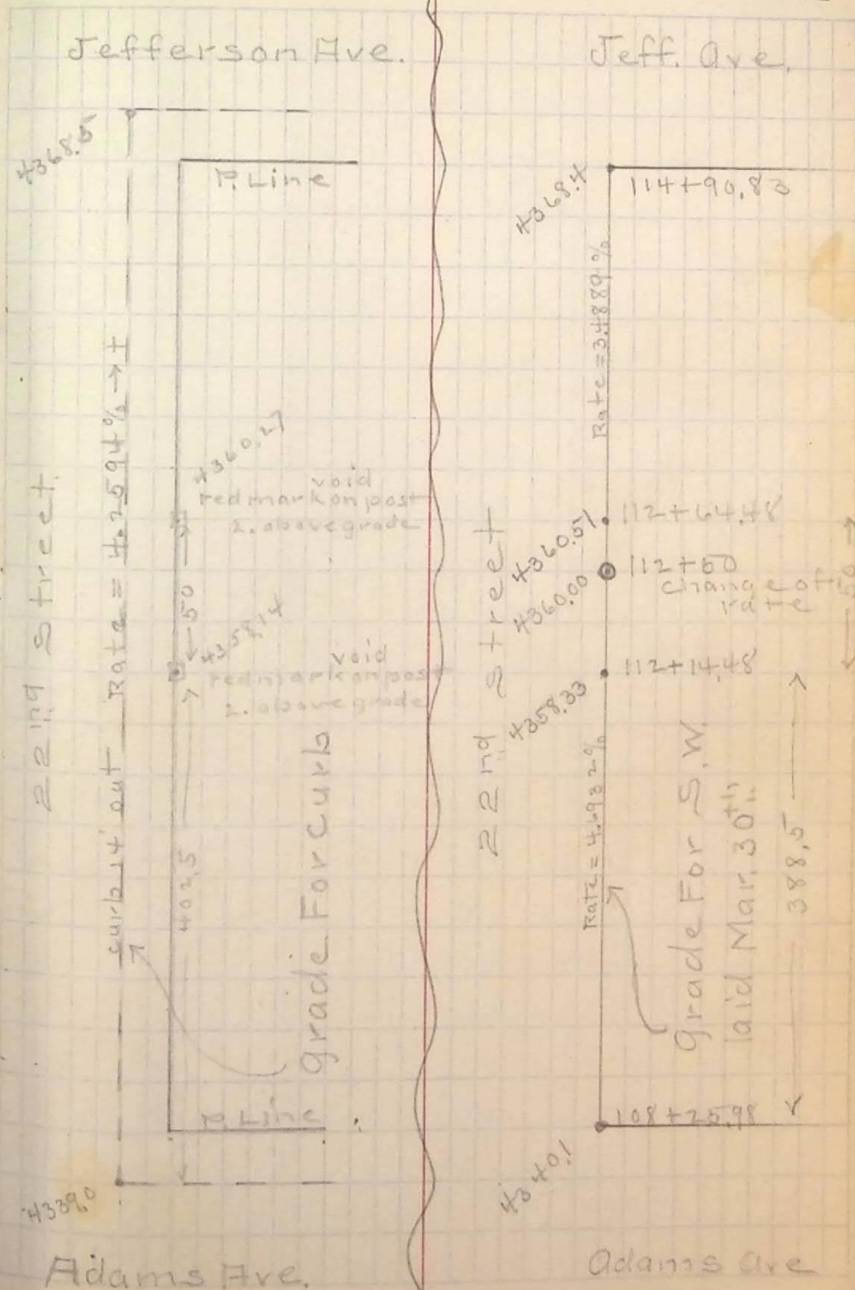 Jefferson Ave.
4368.5
P. Line
22nd Street.
curb 14' out Rate = 4.2594% → I
4360.27
void
red mark on post
2. above grade
50
4358.14
void
red mark on post
2. above grade
402.5
Grade For Curb
P. Line
4339.0
Adams Ave.
Jeff. Ave.
4368.4
114+90.83
Rate = 3.4889%
4360.51
112+64.48
4360.00
112+50
Change of
rate
50
22nd Street
4358.33
112+14.48
Rate = 4.4932%
Grade For S.W.
laid Mar. 30th
388.5
108+25.98
4340.1
Adams Ave